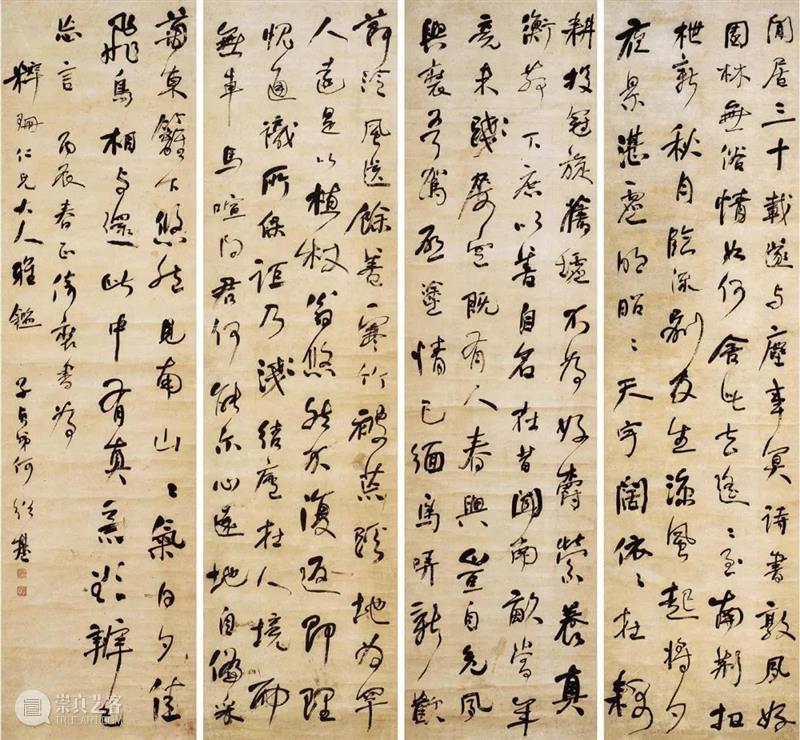 閒居三十載遂与塵事冥詩書敦夙好
園林無俗情如何舍此去遙〻至南荊扣
枻新秋月臨流別友生涼風起將夕
夜景湛虛明昭〻天宇闊依〻在耦
耕投冠旋舊墟不為好爵縈養真
衡茅下庶以善自名在昔聞南畝當年
竟未踐屢空既有人春興豈自免夙
興裝吾駕啟塗情已緬鳥哢新歡
節泠風送餘善寒竹被荒蹊地為罕
人遠是以植杖翁悠然不復返即理
愧通識所保詎乃淺結廬在人境而
無車馬喧問君何能尔心遠地自偏采
菊東籬下悠然見南山〻氣日夕佳
飛鳥相与還此中有真意欲辨已
忘言 丙辰春正倚裝書為
粹珊仁兄大人雅鑑 子貞弟何紹基
崇真艺客
TRUEART.COM